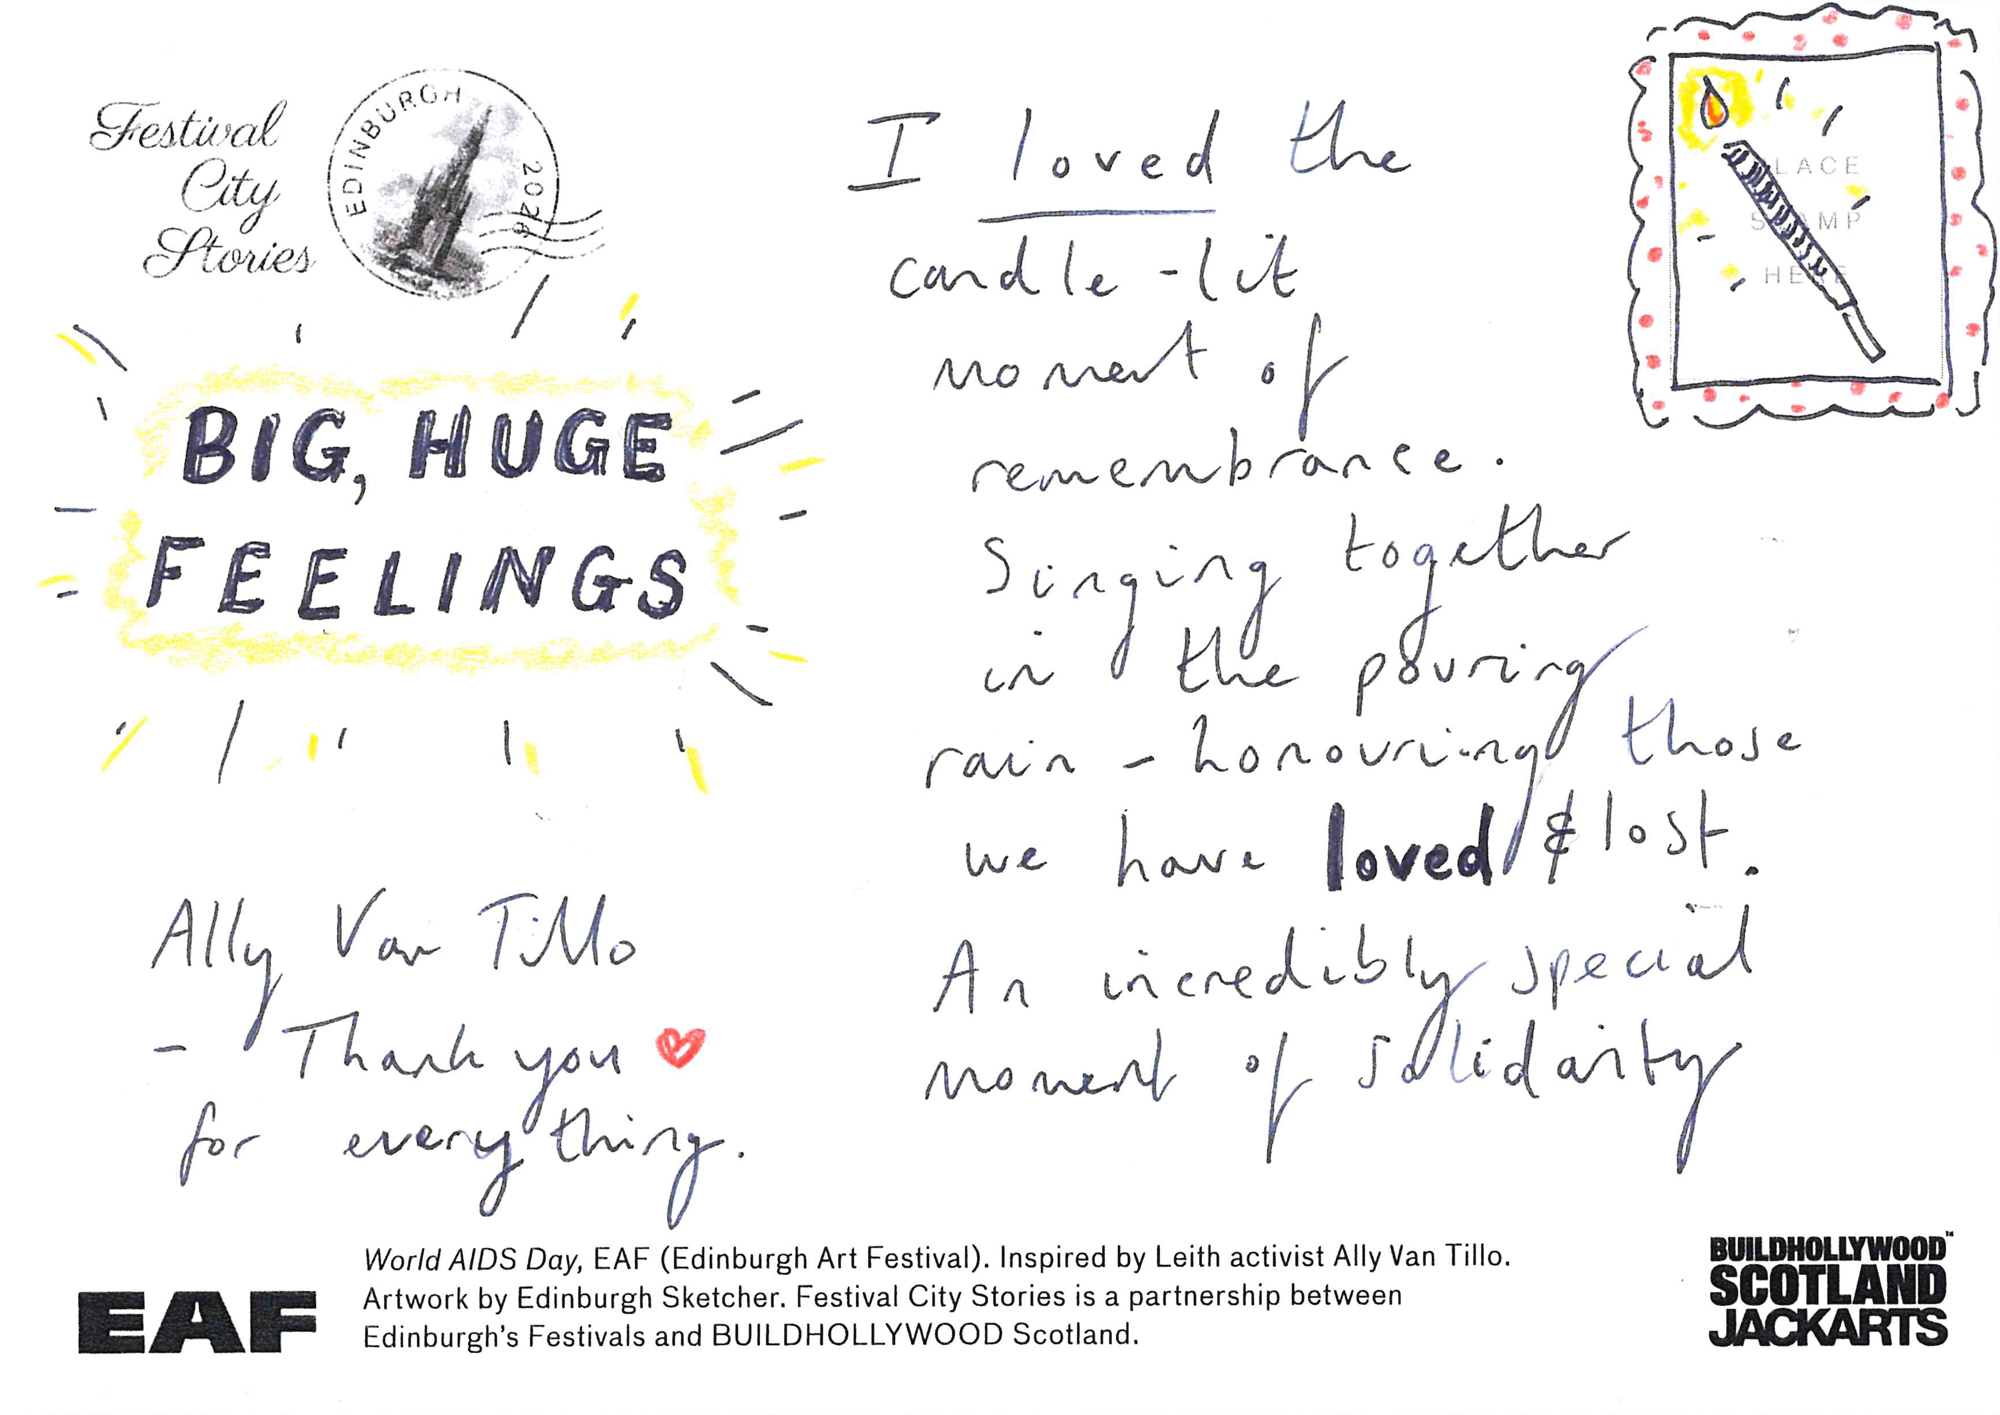 Festival
City
Stories
EDINBURGH 2026
BIG, HUGE
FEELINGS
Ally Van Tillo
- Thank you
for everything.
I loved the
candle-lit
moment of
remembrance.
Singing together
in the pouring
rain - honouring those
we have loved & lost.
An incredibly special
moment of solidarity
PLACE
STAMP
HERE
EAF
World AIDS Day, EAF (Edinburgh Art Festival). Inspired by Leith activist Ally Van Tillo.
Artwork by Edinburgh Sketcher. Festival City Stories is a partnership between
Edinburgh's Festivals and BUILDHOLLYWOOD Scotland.
BUILDHOLLYWOOD™
SCOTLAND
JACKARTS